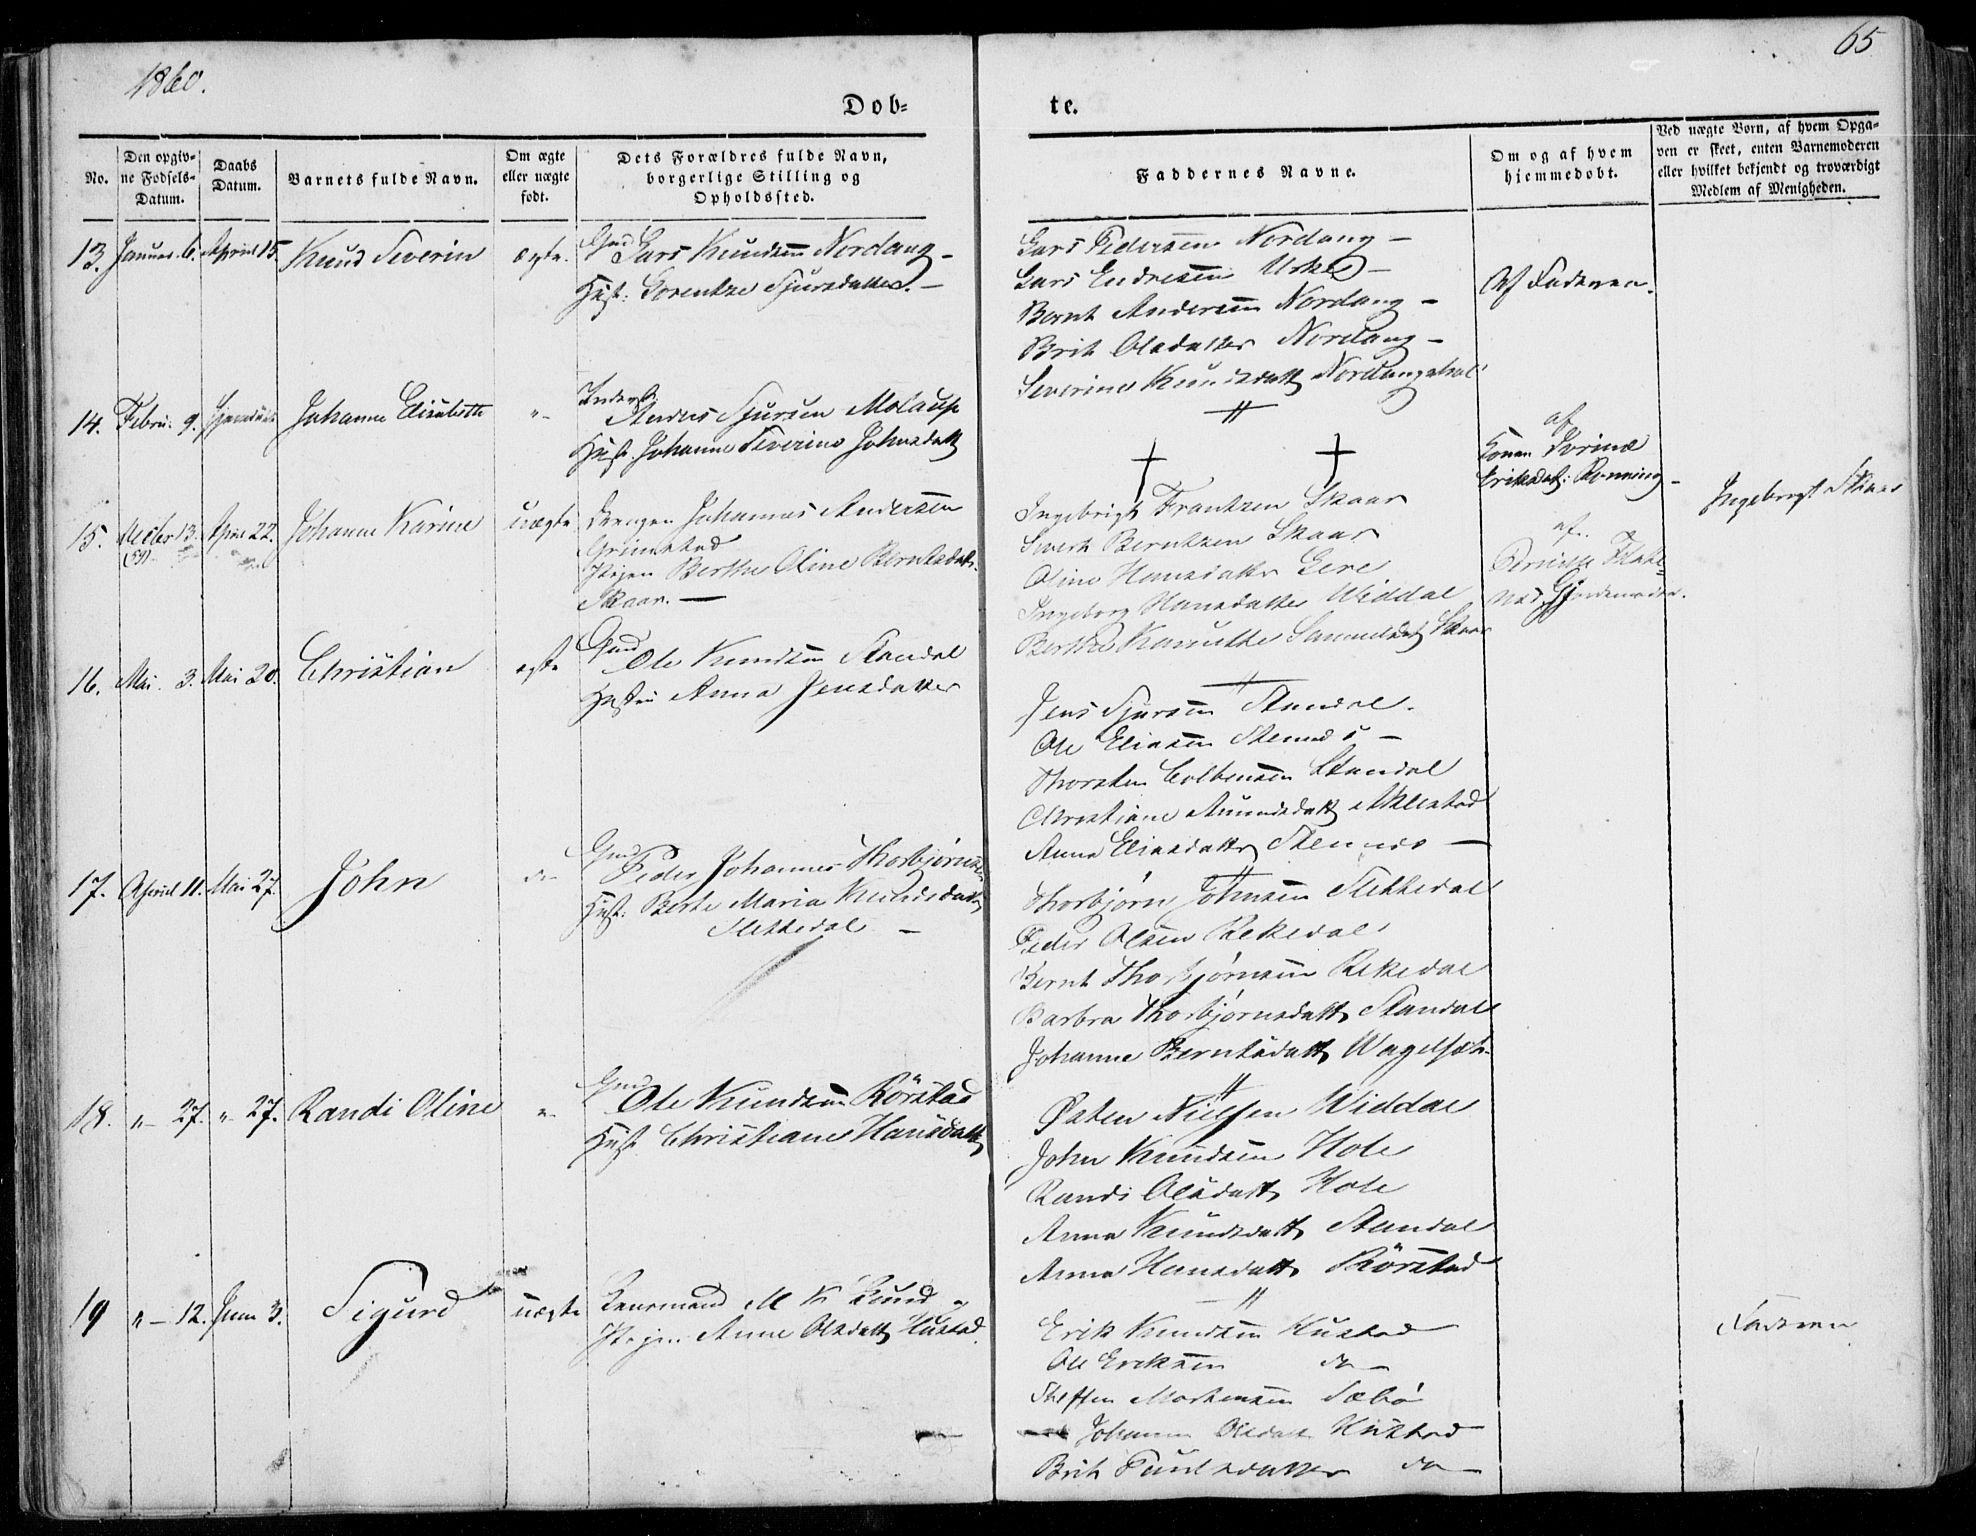 1860.
65
Dob-
te.
No.
Den opgiv-
ne Fodsels-
Datum.
Daabs
Datum.
Barnets fulde Navn.
Om ægte
eller uægte
født.
Dets Forældres fulde Navn,
borgerlige Stilling og
Opholdssted.
Faddernes Navne.
Om og af hvem
hjemmedobt.
Ved uægte Born, af hvem Opga-
ven er skeet, enten Barnemoderen
eller hvilket bekjendt og troværdigt
Medlem af Menigheden.
13. Januar. 6. April 15. Knud Severin ægte.
Gmd
Lars Knudsen Nordang -
Hust: Lorentze Sjursdatter. -
Lars Pedersen Nordang -
Lars Endresen Urke -
Bernt Andersen Nordang -
Brit Olsdatter Nordang -
Severine Knudsdatt Nordangsdal
Af Faderen.
14. Febru. 9. Johanne Elisabeth "-
Inderst
Anders Sjursen Molaup
Hust. Johanne Severine Johnsdatt
af
Konen
Eriksdat: Rønning -
15. Decbr 13. April 22. Johanne Karine uægte
(59)
Drengen Johannes Andersen
Grimstad
Pigen Berthe Oline Berntsdatt.
Skaar. -
Ingebrigt Frantzen Skaar
Sivert Berntzen Skaar
Oline Hansdatter Gere
Ingeborg Hansdatter Widdal
Berthe Samuelsdat Skaar
af.
Gjordemoder.
Ingebrigt Skaar
16. Mai. 3. Mai 20. Christian ægte
Gmd
Ole Knudsen Standal
Hustru Anna Jensdatter
Jens Sjursen Standal.
Ole Eliasen Stennes -
Thorsten Colbensen Standal
Christiane Amundsdatt
Anna Eliasdatter Stennes -
17. April 11. Mai 27. John do
Gmd
Peder Johannes Thorbjørnsen
Hust: Berte Maria Knudsdatt
Slettedal -
Thorbjørn Johnsen Slettedal
Peder Olsen Rekedal
Bernt Thorbjørnsen Rekedal
Barbra Thorbjørnsdatt Standal
Johanne Berntsdatt
18. "- 27. "- 27. Randi Oline "-
Gmd
Ole Knudsen Rörstad
Hust Christiane Hansdatt
Østen Nielsen Widdal
John Knudsen Hole
Randi Olsdatt Hole
Anna Knudsdatt Standal
Anna Hansdatt Rörstad
19 "- 12. Juni 3. Sigurd uægte
M K Lund
Pigen Anne Olsdatt Hustad.
Erik Knudsen Hustad
Ole Eriksen do -
Steffen Mortensen Sæbø
Johanne Olsdatt Hustad
Brit Paulsdatter do -
Faderen